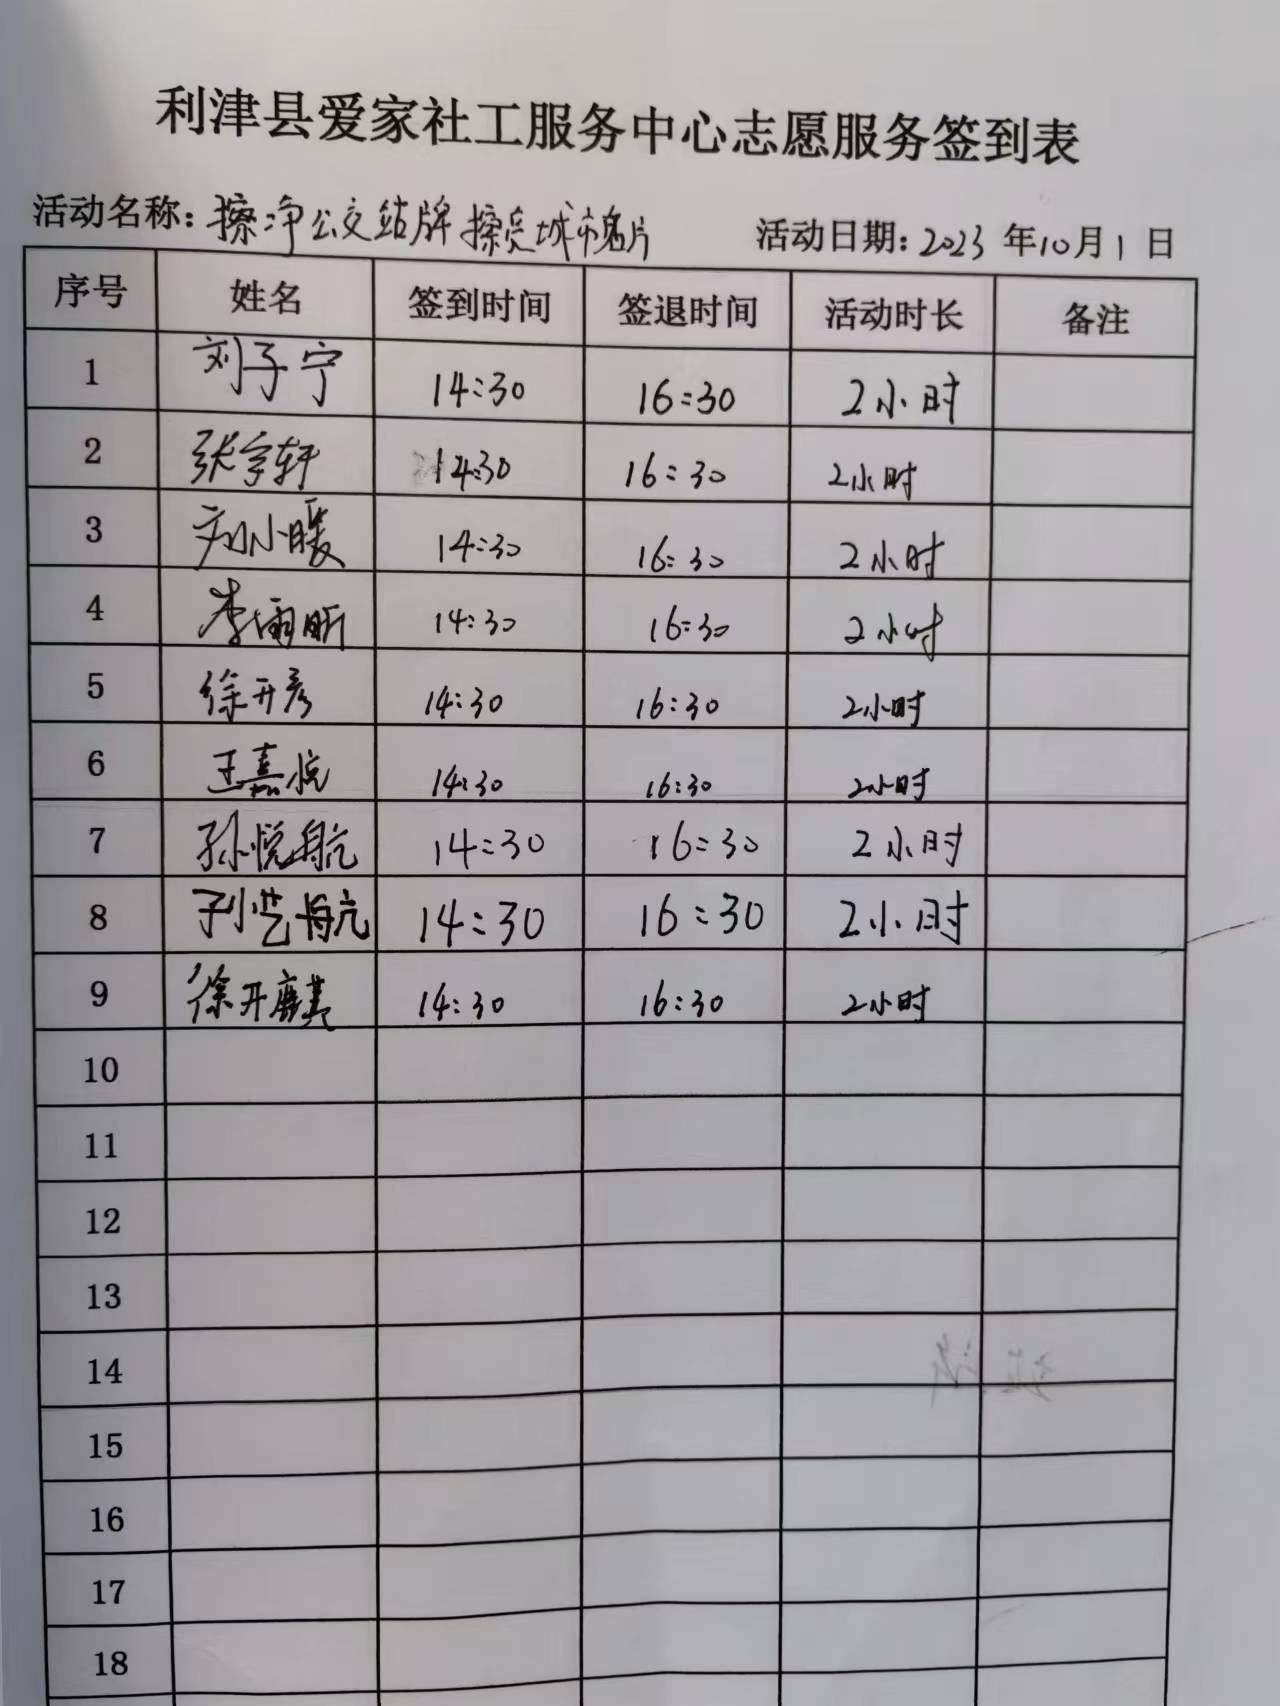 利津县爱家社工服务中心志愿服务签到表
活动名称：擦净公交站牌 擦亮城市名片 活动日期：2023年10月1日
序号 姓名 签到时间 签退时间 活动时长 备注
1 刘子宁 14:30 16:30 2小时
2 张宇轩 14:30 16:30 2小时
3 刘小暖 14:30 16:30 2小时
4 李雨昕 14:30 16:30 2小时
5 徐开彦 14:30 16:30 2小时
6 王嘉悦 14:30 16:30 2小时
7 孙悦航 14:30 16:30 2小时
8 孙艺航 14:30 16:30 2小时
9 徐开麒 14:30 16:30 2小时
10
11
12
13
14
15
16
17
18